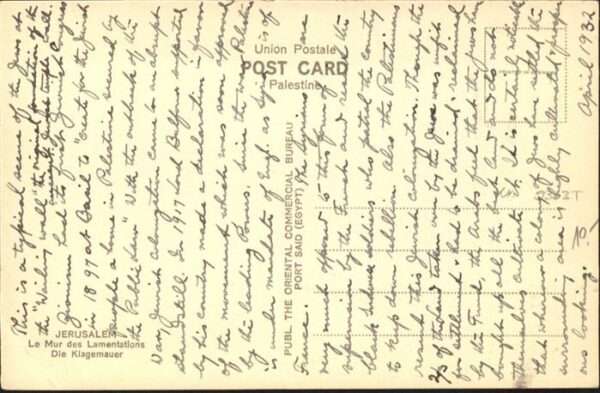 Union Postale
POST CARD
Palestine
This is a typical scene of the Jews at
the "Wailing wall" the original foundation of the
ancient Jewish temple.
Zionism led to first Jewish Congress
in 1897 at Basil to "create for the Jewish
people a home in Palestine secured by
the Public Law" With the outbreak of the
War, Jewish colonization came to an abrupt
standstill. In 1917 Lord Balfour supported
by his country made a declaration in favor
of the movement which was soon approved
by the leading Powers. Since the war Palestine
is under mandate of Eng. as Syria is of
France. The Syrians are
very much opposed to this form of
supervision by the French and resent the
black soldiers who patrol the country
to keep down rebellion. Also the Palestinians
resent this Jewish colonization. Though the
2/3 of the land taken over by the Jews was unfit
for settlement & had to be drained & reclaimed
by the Fund, the Arabs feel that the Jews have
bought up all the best land and do not
themselves cultivate it. It is certainly notable
that where a colony of Jews have settled the
surrounding area is highly cultivated & prosper
ous looking.
April 1932
PUBL. THE ORIENTAL COMMERCIAL BUREAU
PORT SAID (EGYPT)
JERUSALEM
Le Mur des Lamentations
Die Klagemauer